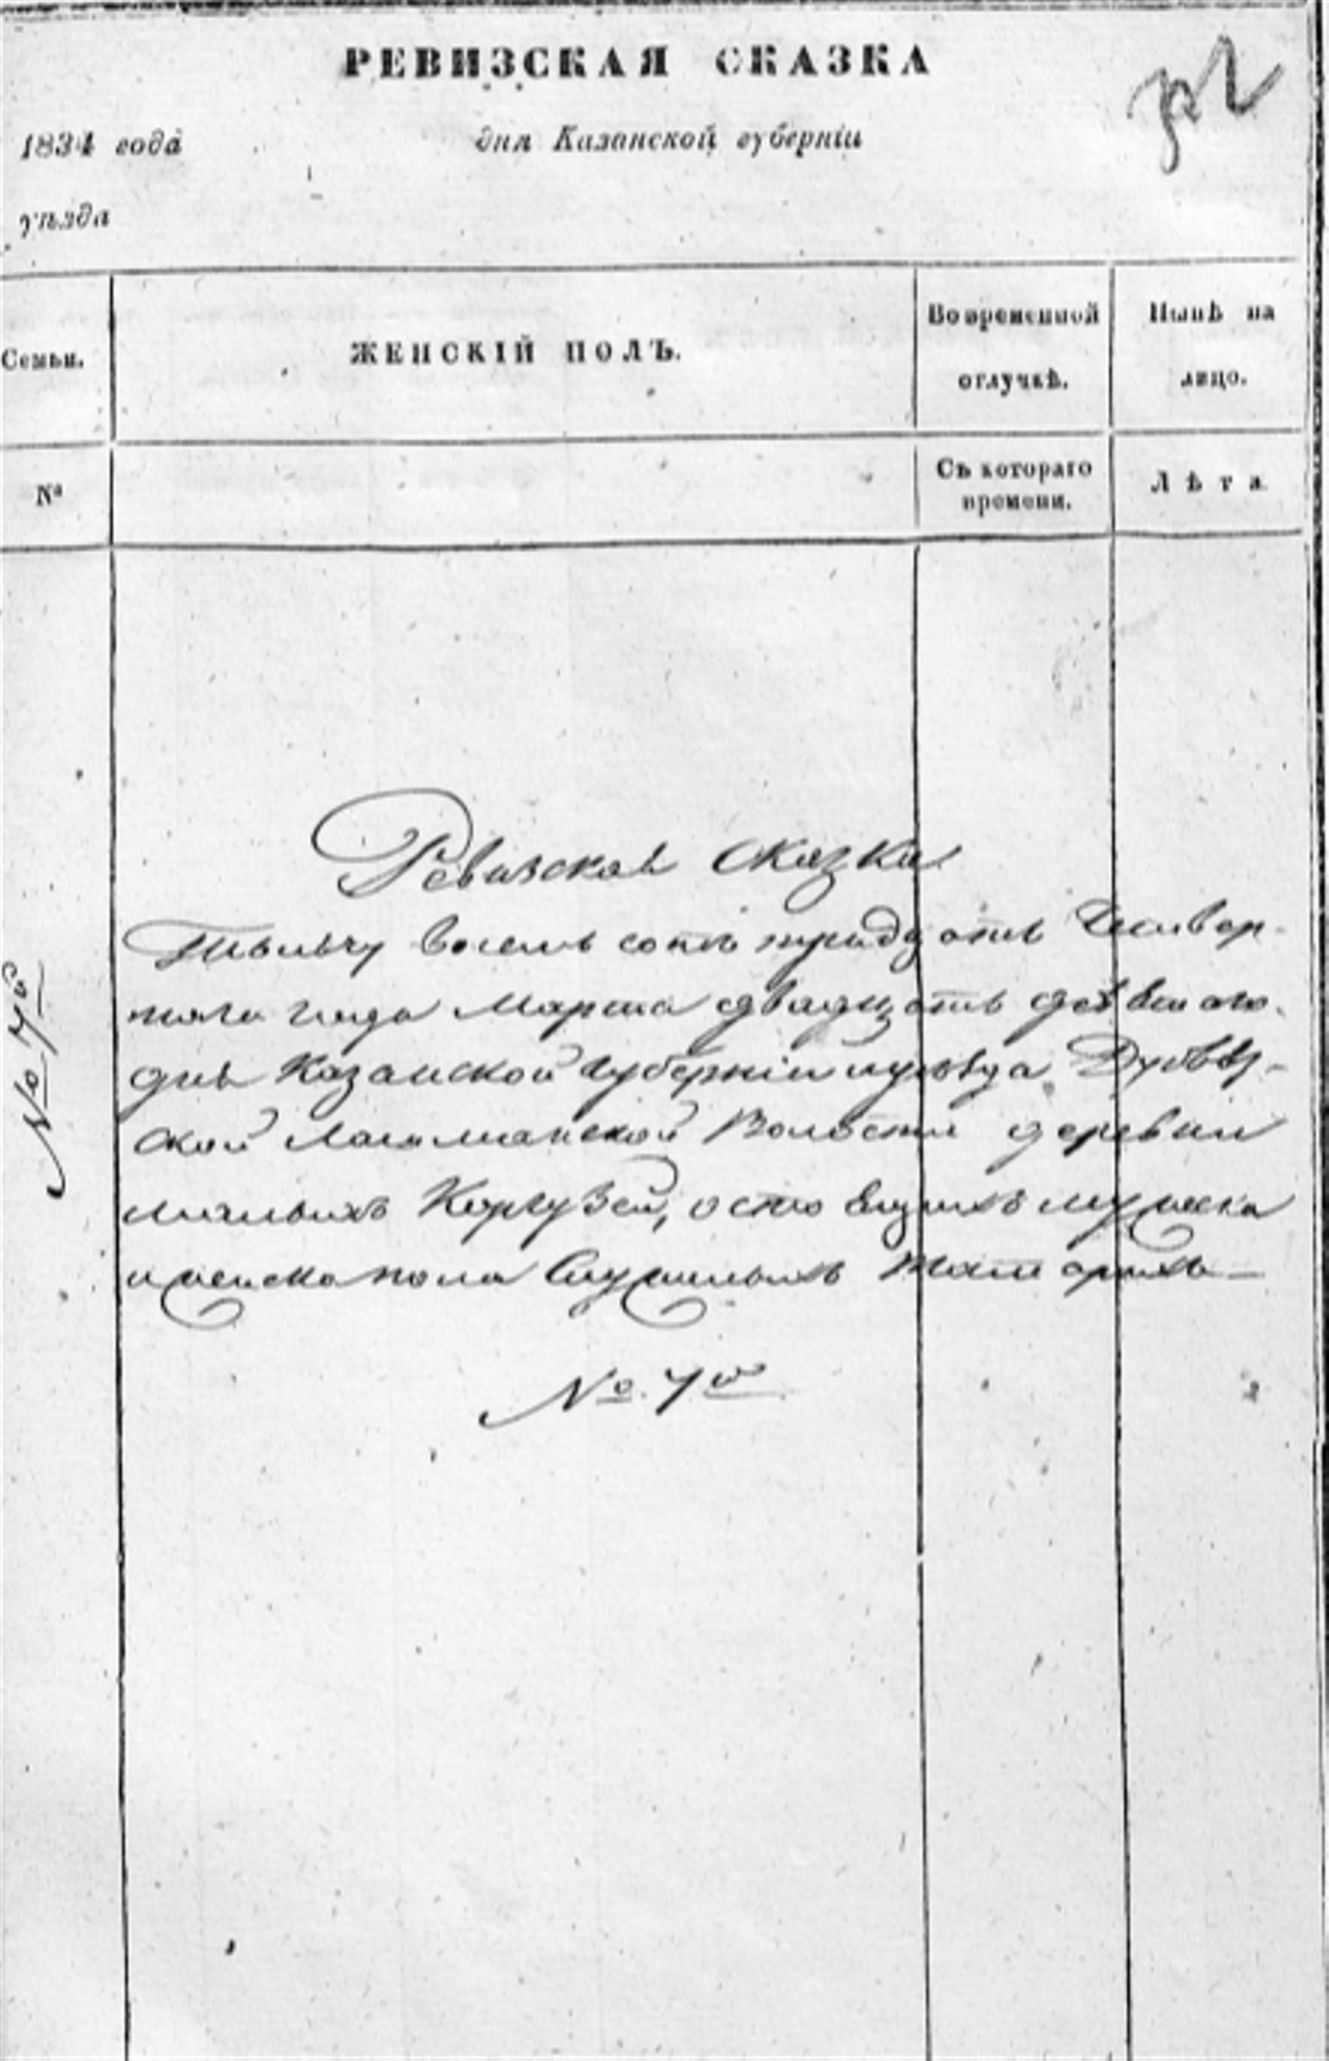 РЕВИЗСКАЯ СКАЗКА
1834 года дня Казанской губерніи
уѣзда
Семьи. ЖЕНСКІЙ ПОЛЪ. Во временной отлучкѣ. Нынѣ на лицо.
№ Съ котораго времени. Лѣта
Ревизская сказка
Тысячу восемь сотъ тридцать Четвер-
таго года Марта двадцать девятаго
дня Казанской Губерніи и уѣзда
ской Лашманской Волости деревни
малыхъ Кургузей, о состоящихъ мужска
и женска пола Служилыхъ татарахъ —
№ 7й
№ 7й